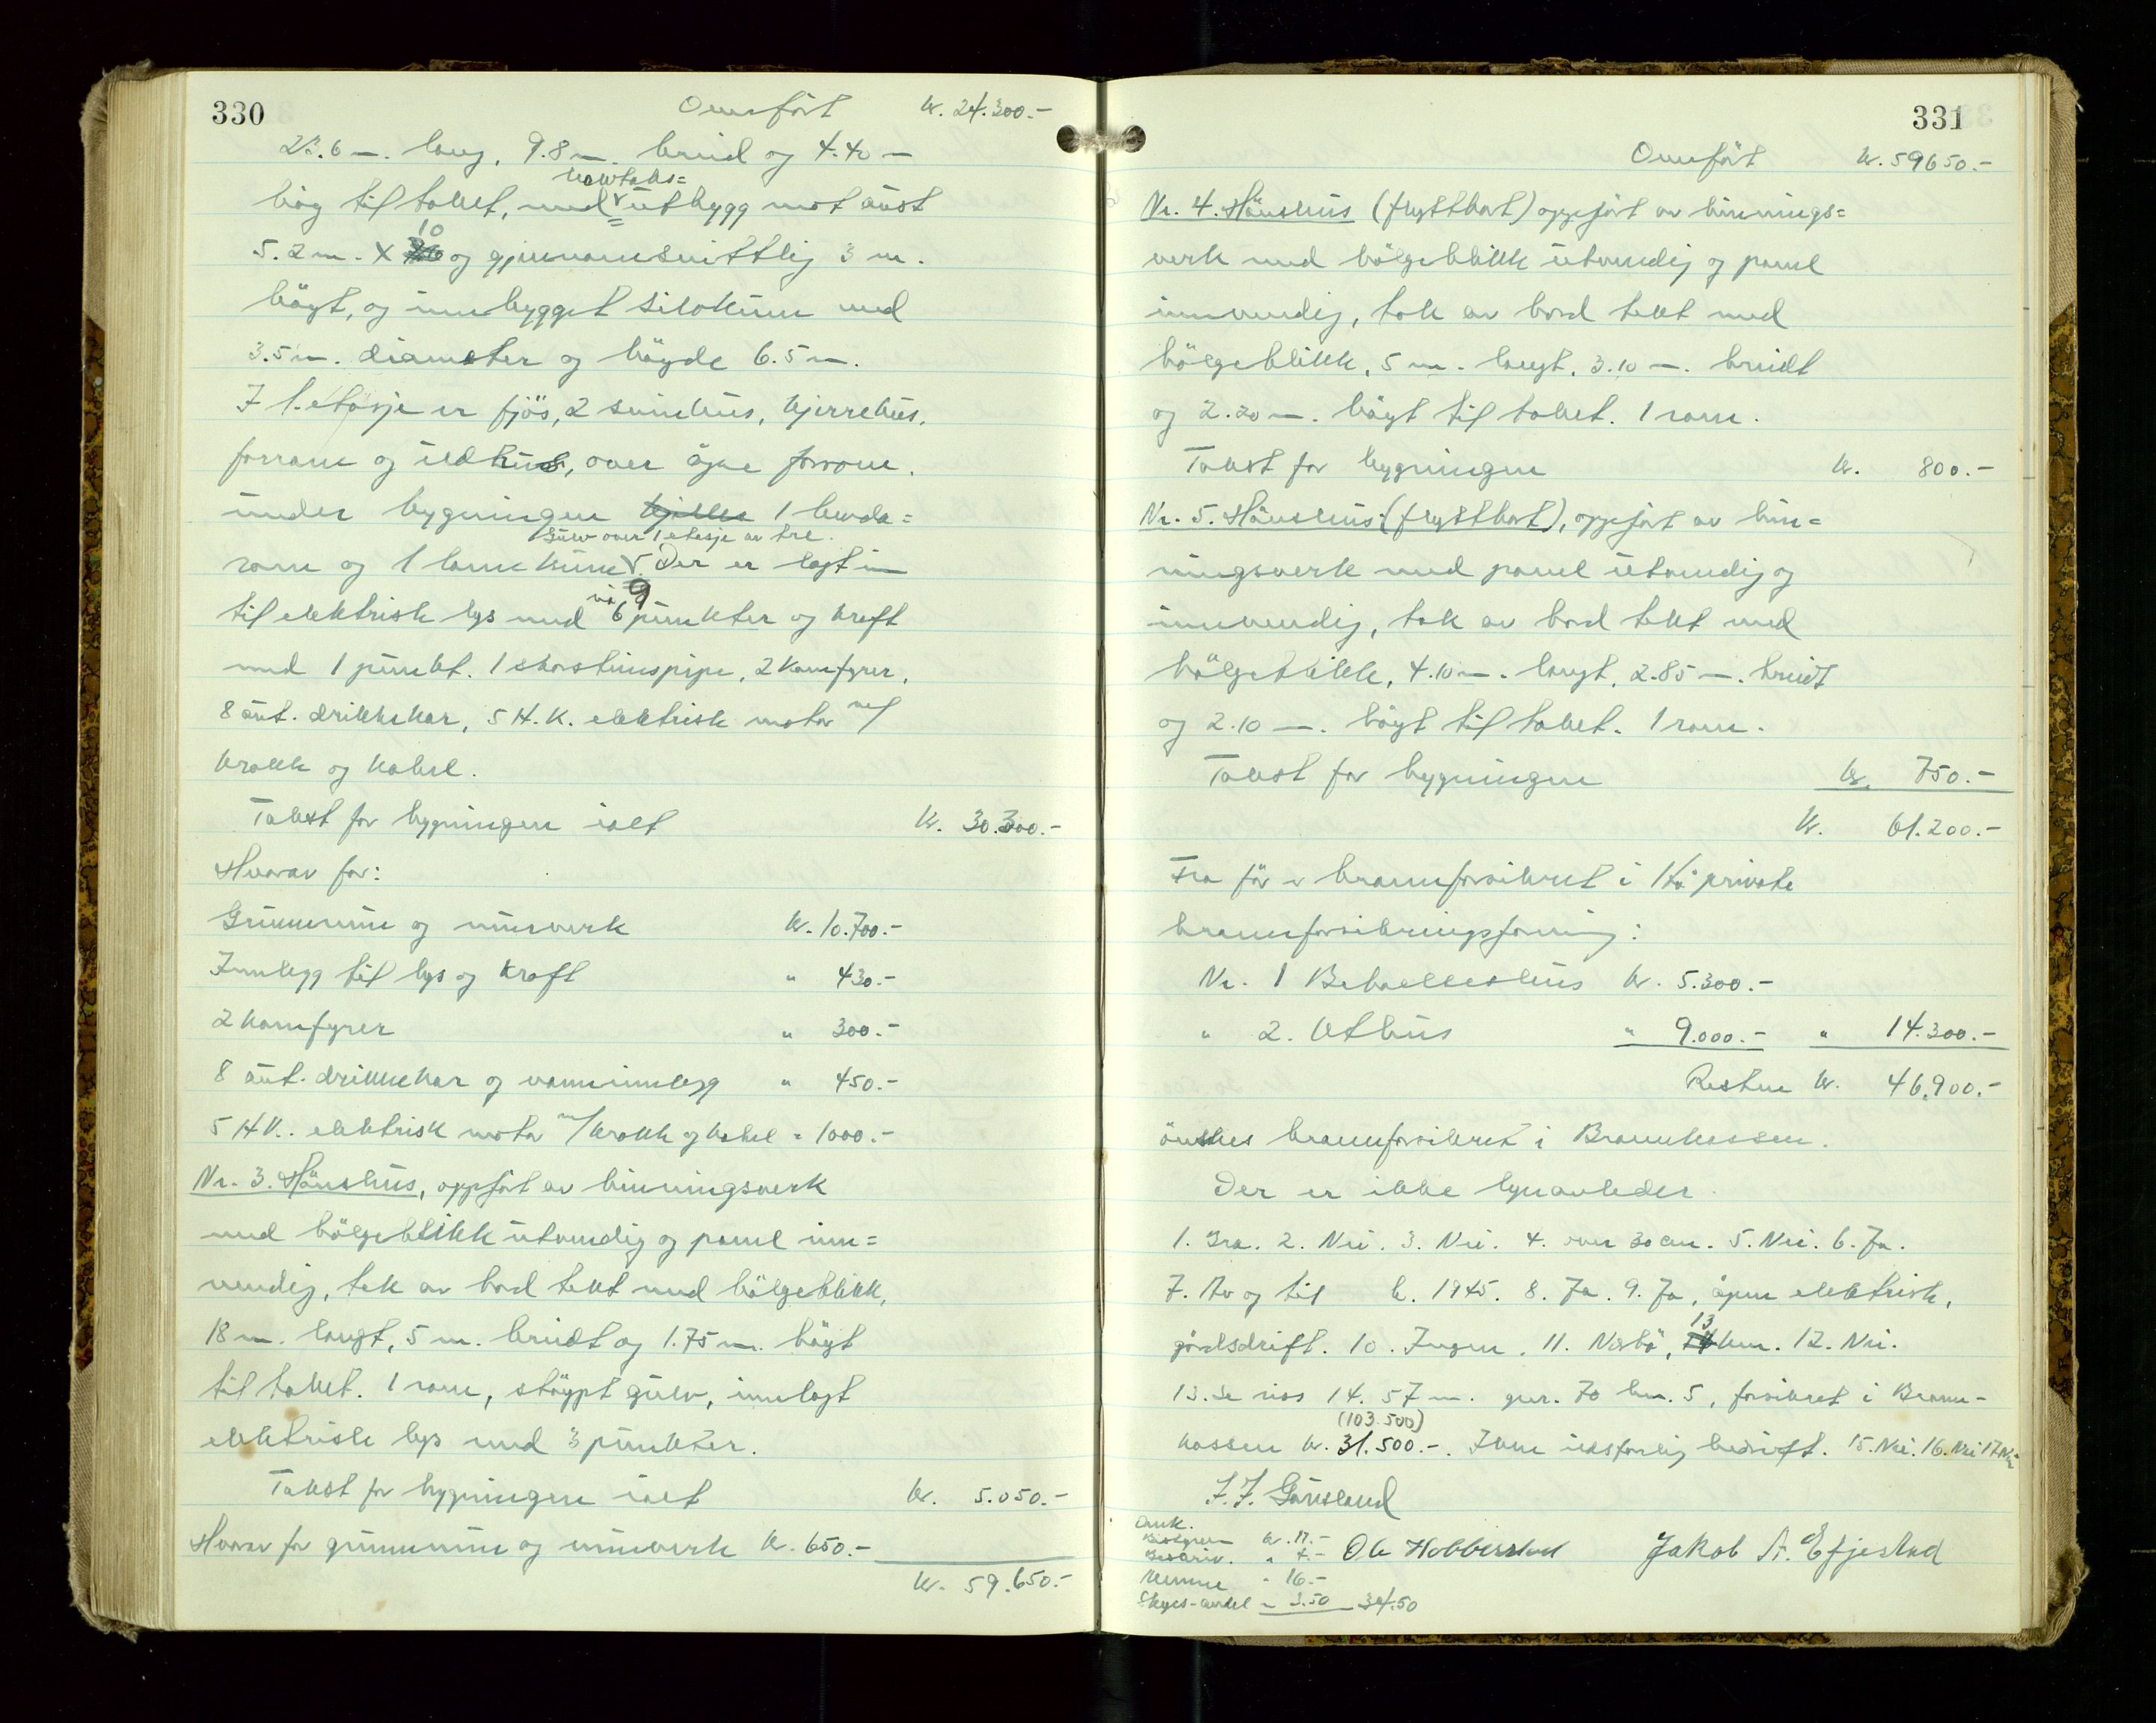 330
Omført kr. 24.300.-
23.6 m. lang, 9.8 m. breid og 4.40 m
halvtaks=
høg til taket, med utbygg mot aust
10
5.2 m. X og gjennomsnittlig 3 m.
høgt, og innbygget silokum med
3.5 m. diameter og høyde 6.5 m.
I 1. etasje er fjøs, 2 svinhus, kjerrehus,
forrom og ildhus, over øgne forrom.
under bygningen kjeller 1 landa=
Gulv over 1 etasje av tre.
rom og 1 lannkum. Der er lagt inn
9
til elektrisk lys med 6 punkter og kraft
med 1 punkt. 1 skorsteinspipe, 2 komfyrer,
8 aut. drikkekar, 5 H.K. elektrisk motor m/
krakk og kabel.
Takst for bygningen ialt kr. 30.300.-
Hvorav for:
Grunnmur og murverk kr. 10.700.-
Innlegg til lys og kraft " 430.-
2 komfyrer " 300.-
8 aut. drikkekar og vanninnlegg " 450.-
5 HK. elektrisk motor m/krakk og kabel " 1000.-
Nr. 3. Hønshus, oppført av binningsverk
med bølgeblikk utvendig og panel inn=
vendig, tak av bord tekt med bølgeblikk,
18 m. langt, 5 m. breidt og 1.75 m. høgt
til taket. 1 rom, støypt gulv, innlagt
elektrisk lys med 3 punkter.
Takst for bygningen ialt kr. 5.050.-
Hvorav for grunnmur og murverk kr. 650.-
kr. 59.650.-
331
Omført kr. 59650.-
Nr. 4. Hønshus (flyttbart) oppført av binnings=
verk med bølgeblikk utvendig og panel
innvendig, tak av bord tekt med
bølgeblikk, 5 m. langt, 3.10 m. breidt
og 2.20 m. høgt til taket. 1 rom.
Takst for bygningen kr. 800.-
Nr. 5. Hønshus (flyttbart), oppført av bin=
ningsverk med panel utvendig og
innvendig, tak av bord tekt med
bølgeblikk, 4.10 m. langt, 2.85 m. breidt
og 2.10 m. høgt til taket. 1 rom.
Takst for bygningen kr. 750.-
kr. 61.200.-
Fra før er brannforsikret i private
brannforsikringsforening:
Nr. 1 Behaelleshus kr. 5.300.-
" 2. Uthus " 9.000.- " 14.300.-
Resten kr. 46.900.-
ønskes brannforsikret i Brannkassen.
Der er ikke lynavleder.
1. Gra. 2. Nei. 3. Nei. 4. over 30 cm. 5. Nei. 6. Ja.
7. Av og til h. 1945. 8. Ja. 9. Ja, åpen elektrisk,
13
gårdsdrift. 10. Ingen. 11. Nærbø, km. 12. Nei.
13. Se riss 14. 57 m. gnr. 70 bnr. 5, forsikret i Brann-
(103.500)
kassen kr. 31.500.-. Ikke ildsfarlig bedrift. 15. Nei. 16. Nei 17. Nei
J. J. Gausland
Ole Hobberstad Jakob A. Efjestad
kr. 11.-
Beskriv. " 4.-
" 16.-
Skyss-andel " 3.50 34.50